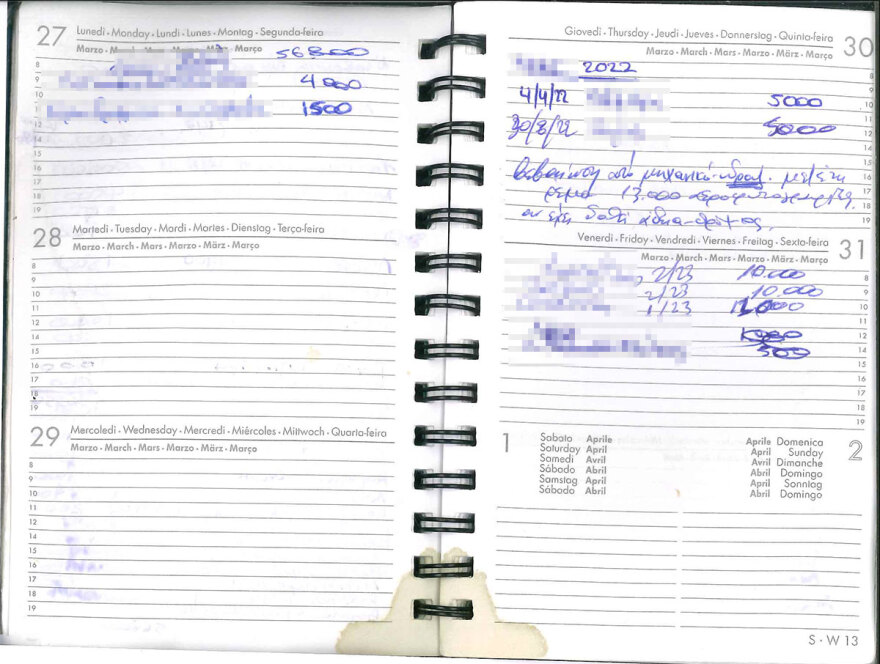 27 Lunedì • Monday • Lundi • Lunes • Montag • Segunda-feira
Marzo • March • Mars • Marzo • März • Março
56800
4000
1500
8
9
10
11
12
14
15
16
17
18
19
28 Martedì • Tuesday • Mardi • Martes • Dienstag • Terça-feira
Marzo • March • Mars • Marzo • März • Março
8
9
10
11
12
14
15
16
17
18
19
29 Mercoledì • Wednesday • Mercredi • Miércoles • Mittwoch • Quarta-feira
Marzo • March • Mars • Marzo • März • Março
8
9
10
11
12
14
15
16
17
18
19
Giovedì • Thursday • Jeudi • Jueves • Donnerstag • Quinta-feira 30
Marzo • March • Mars • Marzo • März • Março
2022
4/4/22 5000
30/8/22 5000
από μηχανικό
13.000
αν έχει δοθεί άδεια
8
9
10
11
12
14
15
16
17
18
19
Venerdì • Friday • Vendredi • Viernes • Freitag • Sexta-feira 31
Marzo • March • Mars • Marzo • März • Março
2/23 10.000
2/23 10.000
1/23
500
8
9
10
11
12
14
15
16
17
18
19
1 Sabato Aprile
Saturday April
Samedi Avril
Sábado Abril
Samstag April
Sábado Abril
Aprile Domenica 2
April Sunday
Avril Dimanche
Abril Domingo
April Sonntag
Abril Domingo
S • W 13